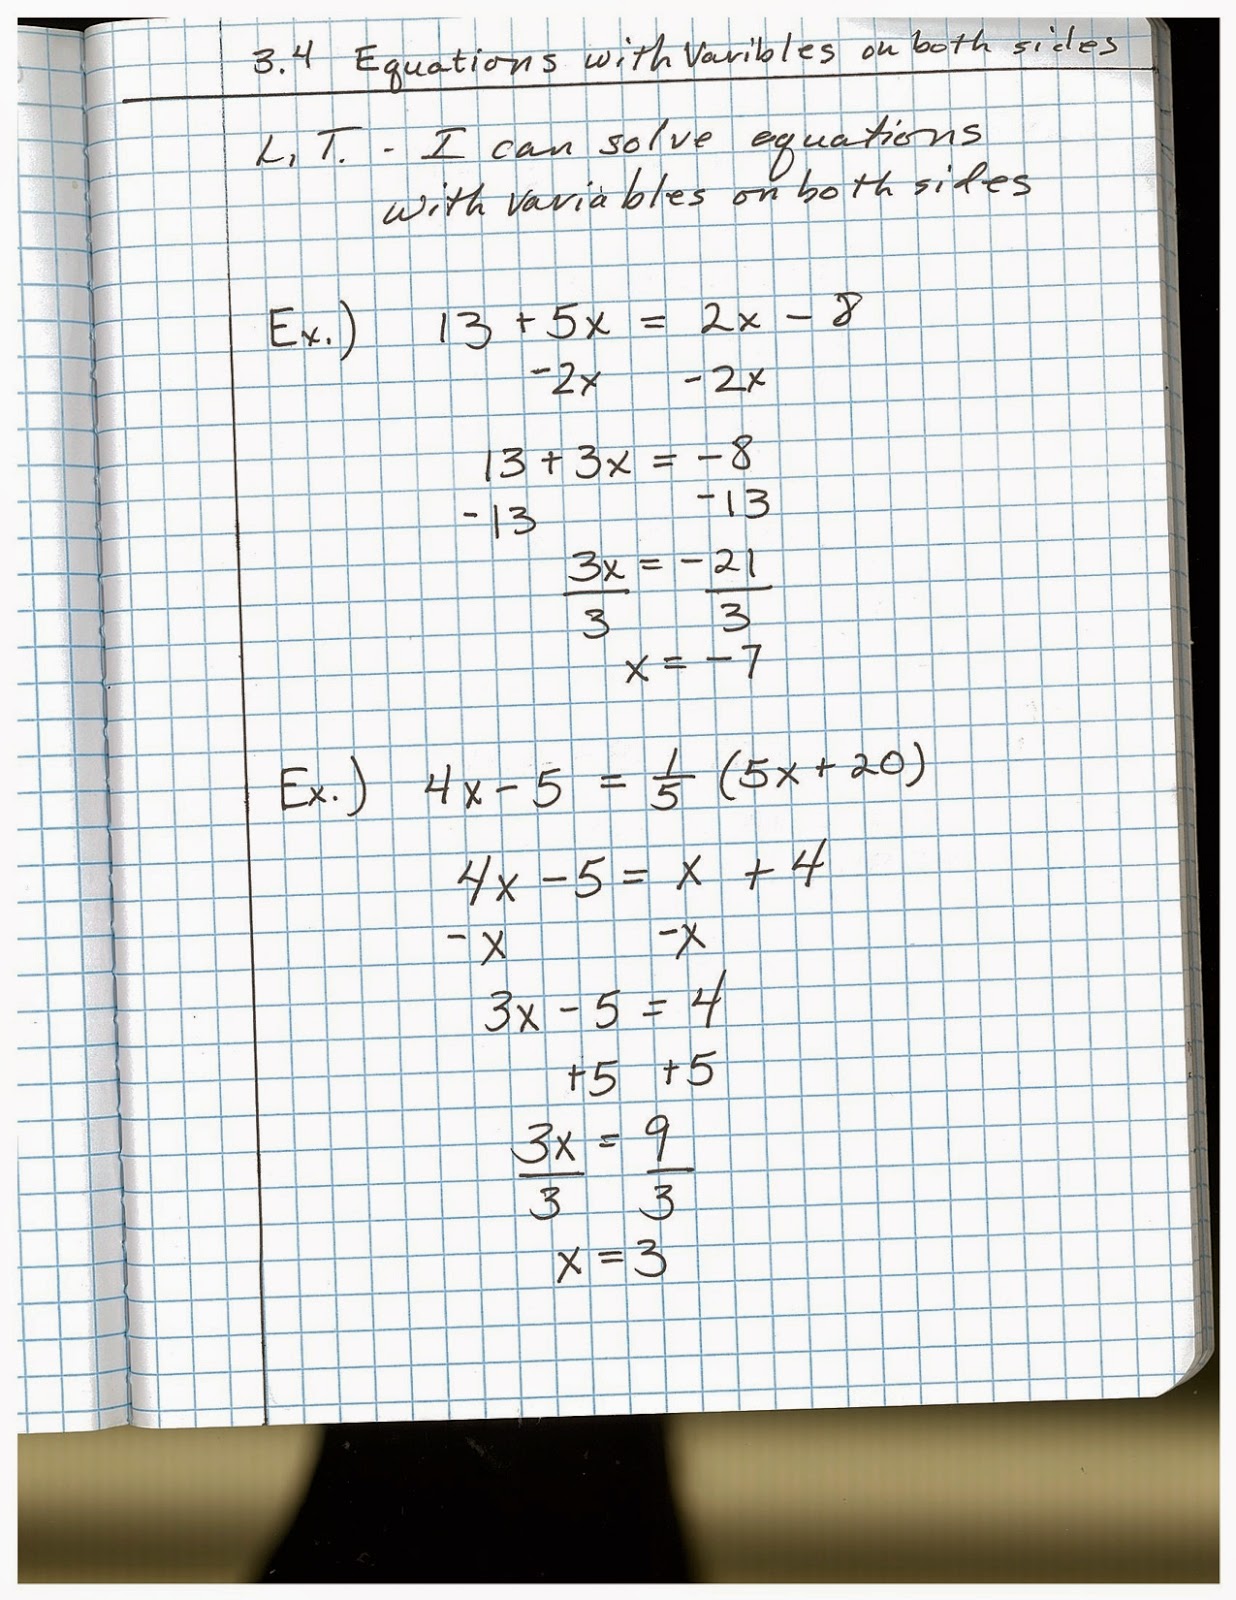 3.4 Equations with Varibles on both sides
L.T. - I can solve equations
with variables on both sides
Ex.) 13 + 5x = 2x - 8
-2x -2x
13 + 3x = -8
-13 -13
3x = -21
3 3
x = -7
Ex.) 4x - 5 = 1/5 (5x + 20)
4x - 5 = x + 4
-x -x
3x - 5 = 4
+5 +5
3x = 9
3 3
x = 3